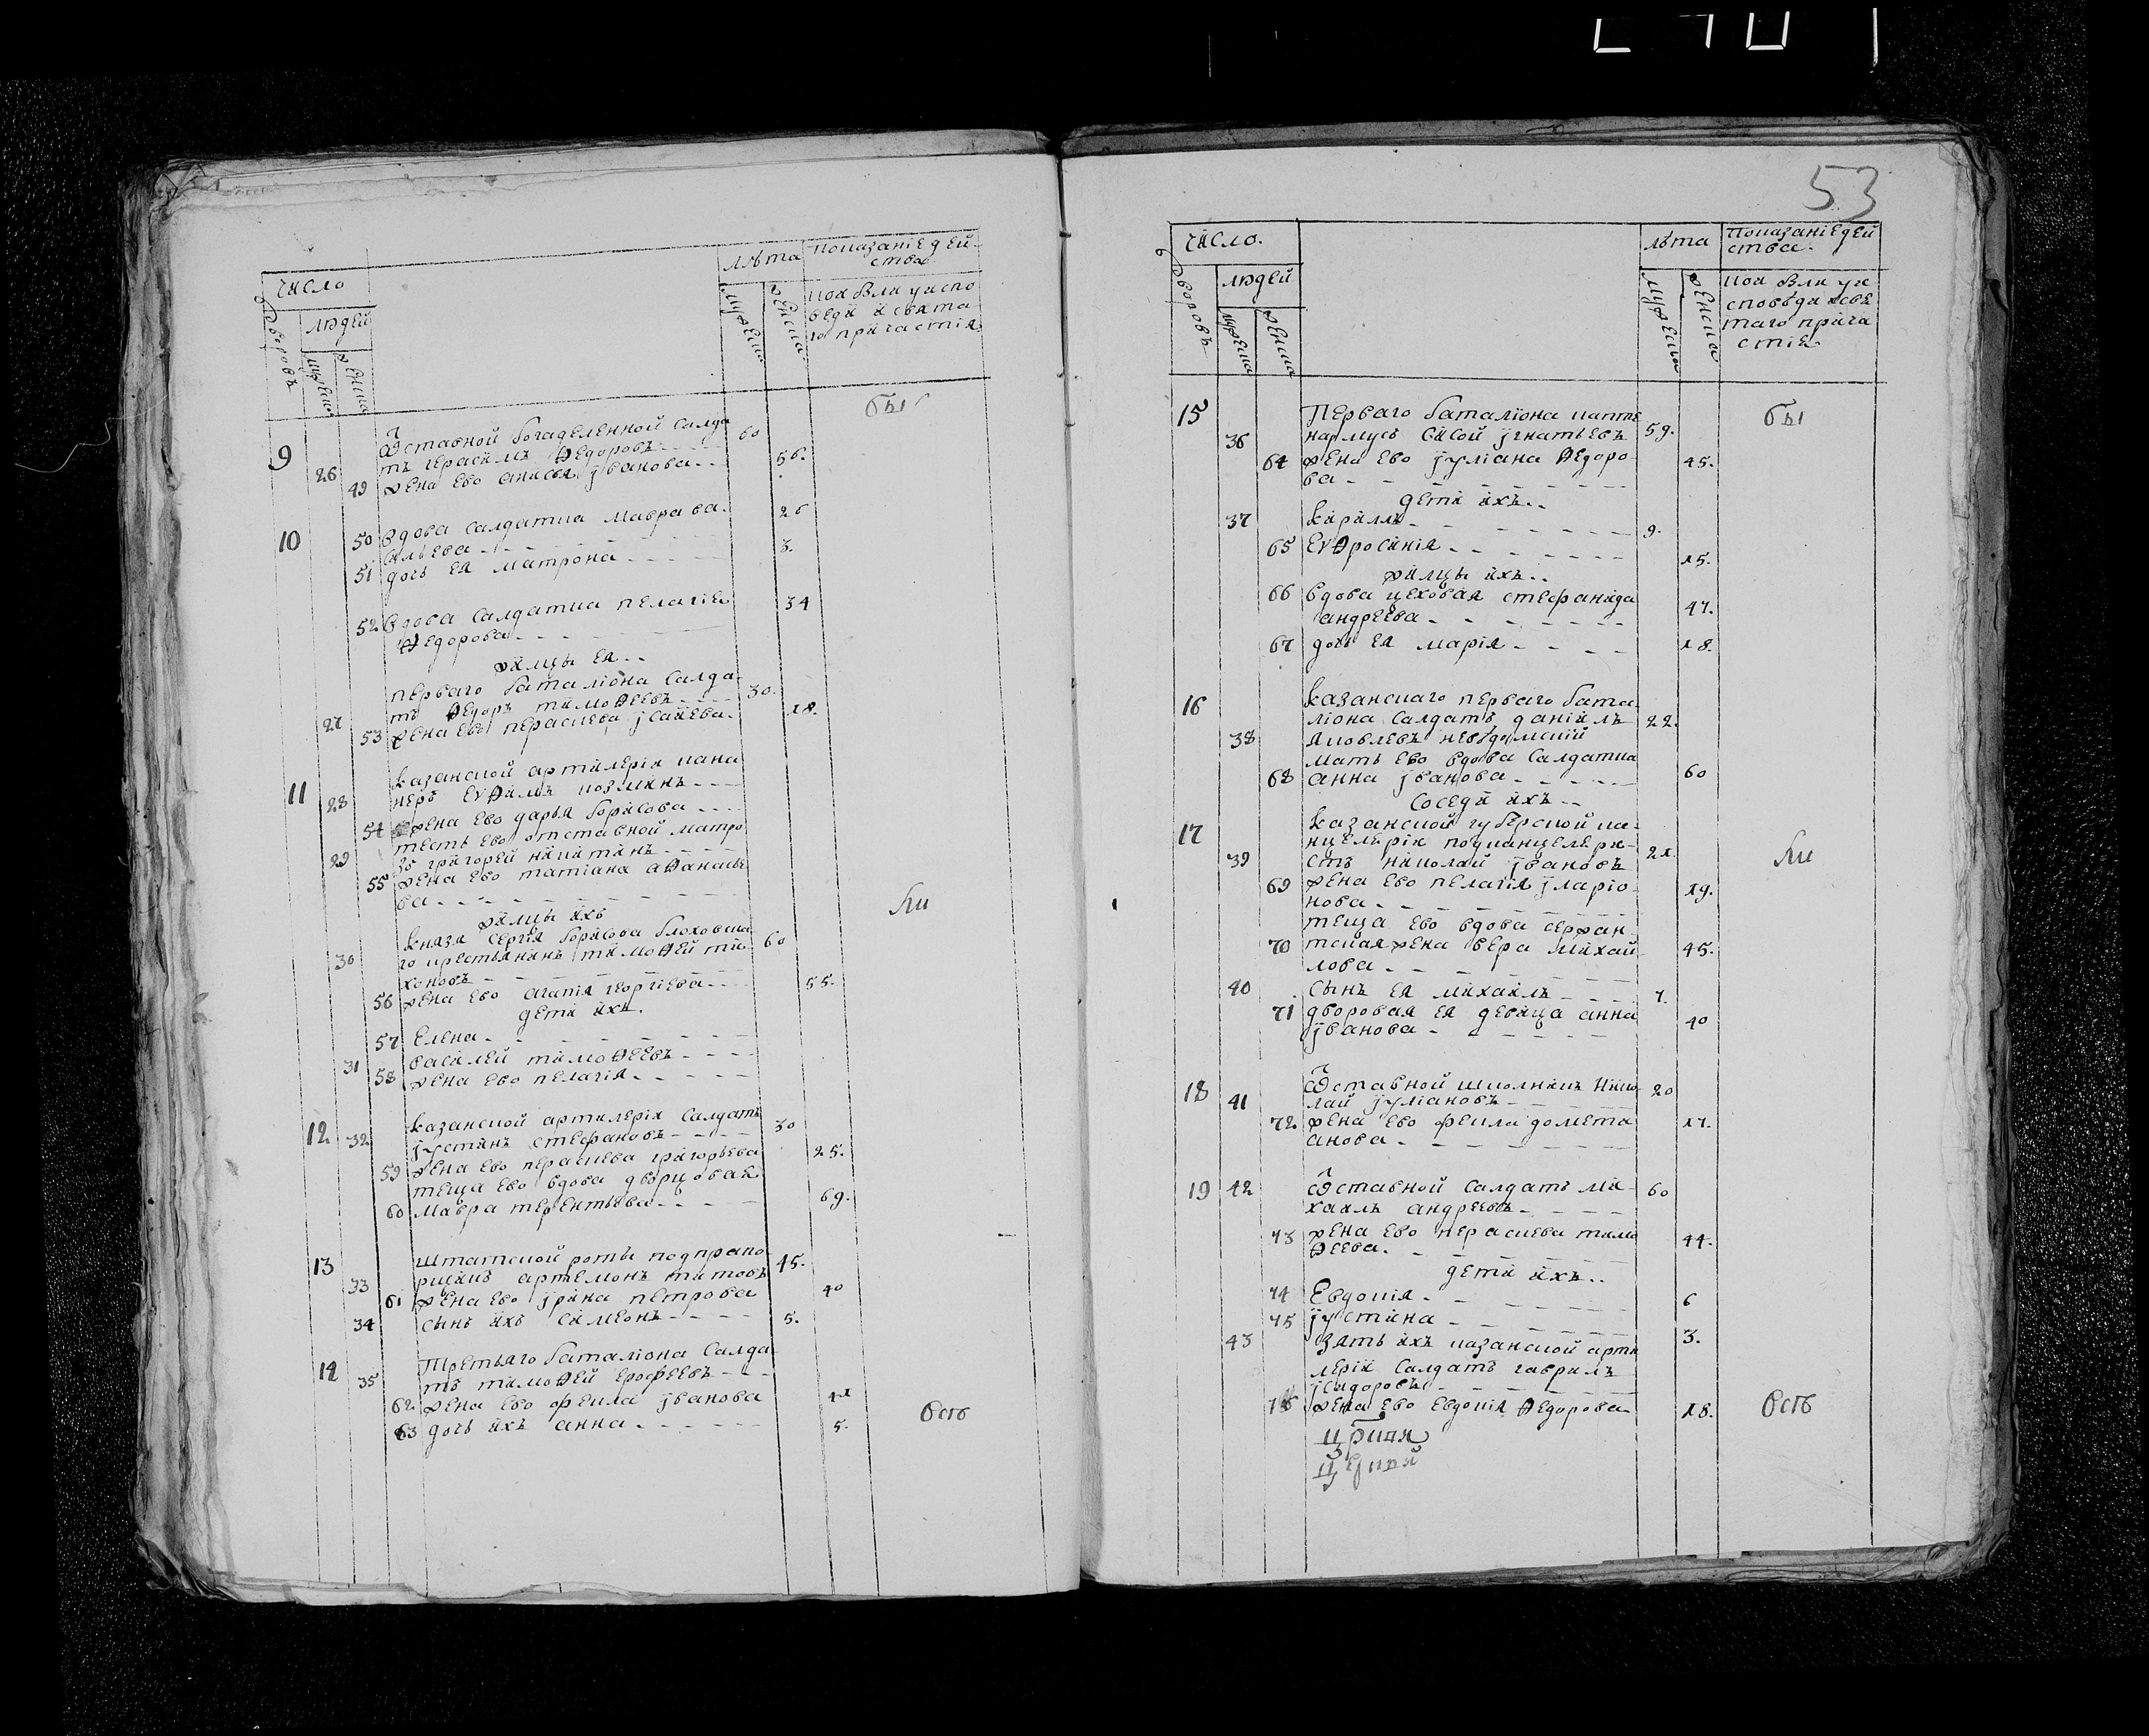 Число
лѣта
показанiе дей
ства
дворовъ
людей
мужеска
женска
мужеска
женска
кои были у испо
веди и свята
го причастiя
бы
9 26 Ѿставной богаделенной салда 60
тъ герасимъ Ѳедоровъ
49 жена ево анисья Iванова 56.
10 50 вдова салдатка мавра ва 26
сильева
51 дочь ея матрона 3.
52 вдова салдатка пелагiя 34
Ѳедорова
жилцы ея
перваго баталiона салда 30.
27 тъ Ѳедоръ тимоѲеевъ
53 жена ево пераскева Iсаиева.
11 казанской артилерiи кано
28 неръ еѵѲимъ козминъ
54 жена ево дарья борисова
тесть ево отставной матро
29 зъ григорей никитинъ
55 жена ево татiана аѲанасье
ва
ли
жилцы ихъ
князя сергiя борисова
30 го крестьянинъ тимоѲей ти 60
хоновъ
56 жена ево агапiя георгiева 55.
дети ихъ.
57 Елена
31 василей тимоѲеевъ
58 жена ево пелагiя
12 32 казанской артилерiи салдатъ 30
Iустинъ стефановъ
59 жена ево пераскева григорьева 25.
теща ево вдова дворцовая
60 мавра терентьева 69.
13 штатской роты подпрапо 45.
33 рщикъ артемонъ титовъ
61 жена ево Iрина петрова 40
34 сынъ ихъ симеонъ 5.
14 35 Третьяго баталiона салда
тъ тимоѲей ерофеевъ
62 жена ево фекла Iванова
63 дочь ихъ анна 5.
всѣ
53
Число.
лѣта
показанiе дей
ства.
дворовъ
людей
мужеска
женска
мужеска
женска
кои были у и
споведи и свя
таго прича
стiя
15 Перваго баталiона капте 59. бы
36 нармусъ сысой Iгнатьевъ
64 жена ево Iулiана Ѳедоро 45.
ва
дети ихъ
37 кирилъ 9.
65 ЕѵѲросинiя 15.
жилцы ихъ
66 вдова цеховая стефанида 47.
андреева
67 дочь ея марiя 18.
16 казанскаго перваго бата
38 лiона салдатъ данiилъ 22.
яковлевъ
мать ево вдова салдатка
68 анна Iванова 60
соседи ихъ
17 казанской губерской ка
нцелярiи подканцеляри
39 стъ николай Iвановъ 21. ли
69 жена ево пелагiя Iларiо 19.
нова
теща ево вдова сержан
70 тская жена вера михаи 45.
лова
40 сынъ ея михаилъ 7.
71 дворовая ея девица анна 40
Iванова
18 41 Ѿставной школникъ нико 20
лай Iулiановъ
72 жена ево фекла домета 17.
анова
19 42 Ѿставной салдатъ ми 60
хаилъ андреевъ
73 жена ево пераскева тимо 44.
Ѳеева.
дети ихъ
74 Евдокiя 6
75 Iустина 3.
43 зять ихъ казанской арти
лерiи салдатъ гаврилъ
Iсидоровъ
76 жена ево евдокiя Ѳедорова 18. всѣ